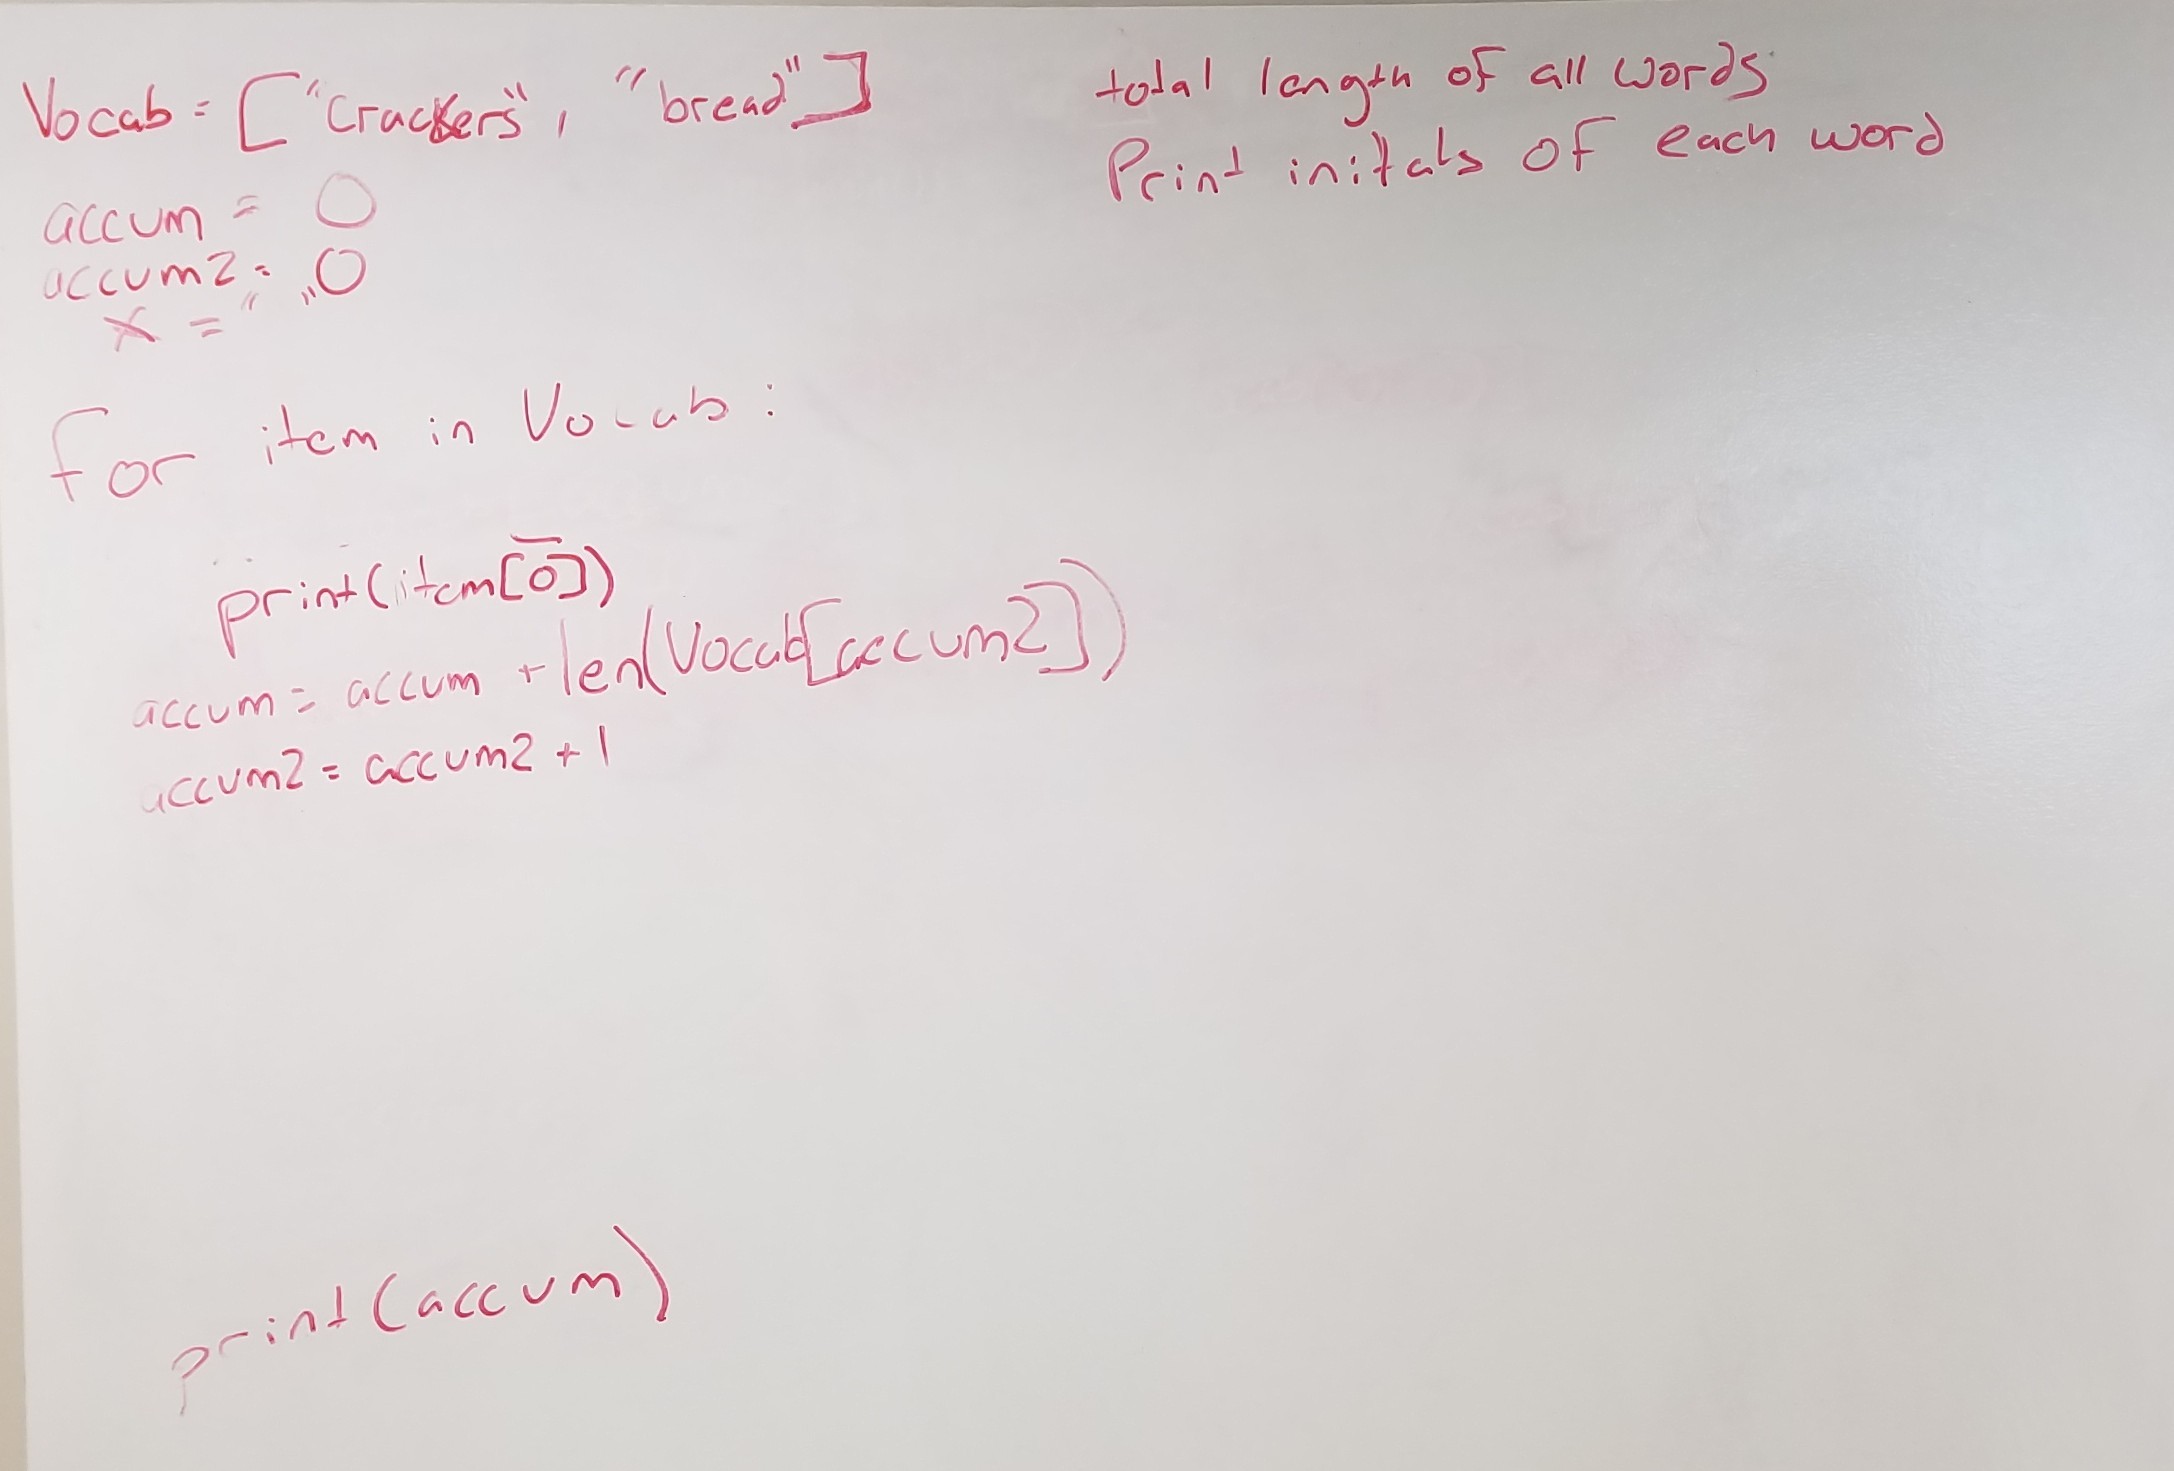 Vocab = ["Crackers", "bread"]
total length of all words
Print initals of each word
accum = 0
accum2 = 0
x = " "
for item in Vocab:
print(item[0])
accum = accum + len(Vocab[accum2])
accum2 = accum2 + 1
print(accum)